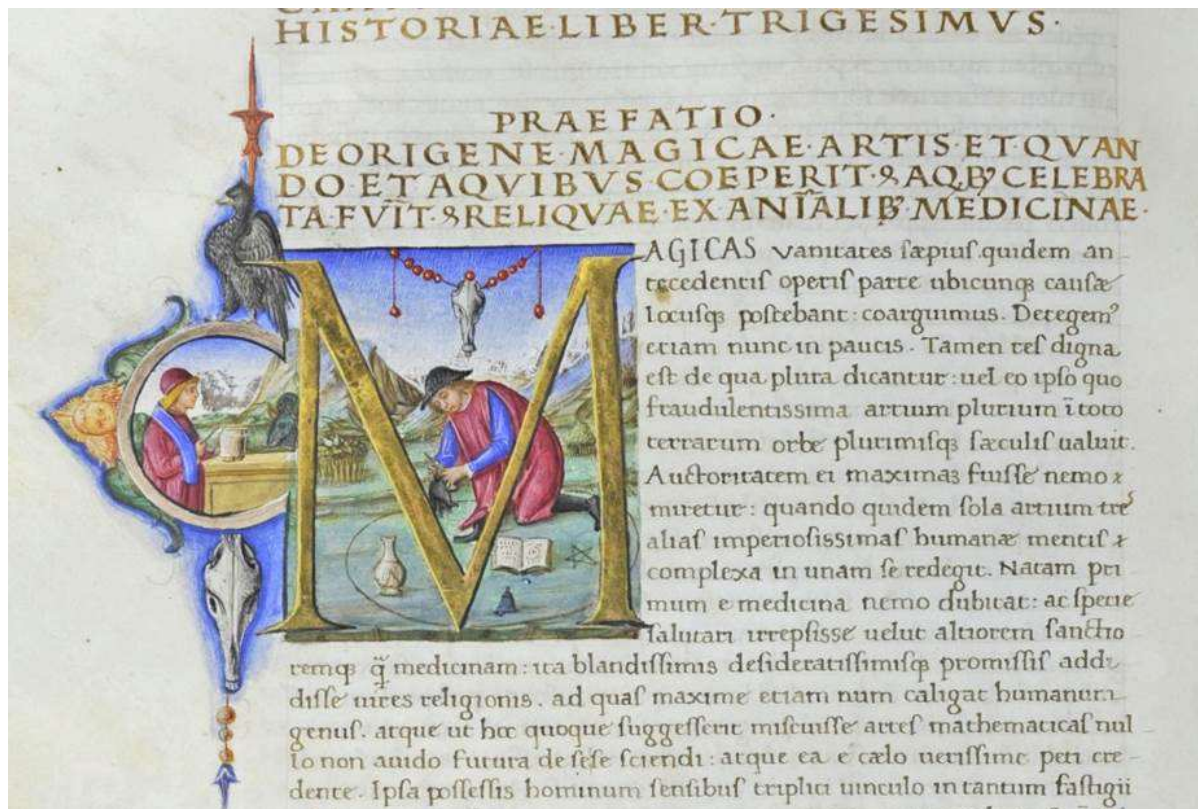 HISTORIAE·LIBER·TRIGESIMVS·
PRAEFATIO·
DE ORIGENE·MAGICAE·ARTIS·ET·QVAN
DO·ET AQVIBVS·COEPERIT·⁊ AQ,Bꝰ CELEBRA
TA·FVĪT·⁊ RELIQVAE·EX ANĪALIBꝰ·MEDICINAE·
MAGICAS vanitates sæpius quidem an
tecedentis operis parte ubicunq; causæ
locusq; postebant: coarguimus. Detegemꝰ
etiam nunc in paucis. Tamen res digna
est de qua plura dicantur: uel eo ipso quo
fraudulentissima artium plurium ī toto
terrarum orbe plurimisq; sæculis ualuit.
Auctoritatem ei maximaꝫ fuisse nemo
miretur: quando quidem sola artium tres
alias imperiosissimas humanæ mentis
complexa in unam se redegit. Natam pri
mum e medicina nemo dubitat: ac specie
salutari irrepsisse uelut altiorem sanctio
remq; q̄ medicinam: ita blandissimis desideratissimisq; promissis addi
disse uires religionis. ad quas maxime etiam num caligat humanum
genus. atque ut hoc quoque suggesserit miscuisse artes mathematicas nul
lo non auido futura de sese sciendi: atque ea e cælo uerissime peti cre
dente. Ipsa possessis hominum sensibus triplici uinculo in tantum fastigii